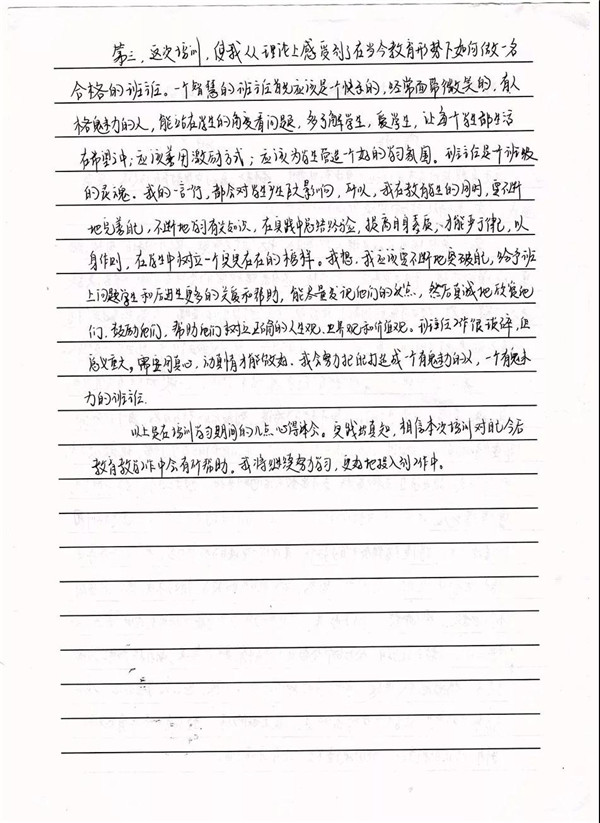 第三，这次培训，使我从理论上感受到了在当今教育形势下如何做一名
合格的班主任。一个智慧的班主任首先应该是个快乐的，经常面带微笑的，有人
格魅力的人，能站在学生的角度看问题，多了解学生，爱学生，让每个学生都生活
在希望中；应该善用激励方式；应该为学生营造一个好的学习氛围。班主任是个班级
的灵魂。我的一言一行，都会对学生产生巨大影响，所以，我在教育学生的同时，要不断
地完善自己，不断地学习有关知识，在实践中总结经验，提高自身素质，才能严于律己，以
身作则，在学生中树立一个实实在在的榜样。我想，我应该要不断地突破自己，给予班
上问题学生和后进生更多的关爱和帮助，能尽量发现他们的优点，然后真诚地欣赏他
们、鼓励他们，帮助他们树立正确的人生观、世界观和价值观。班主任工作很琐碎，但
意义重大，需要用真心，动真情才能做好。我会努力把自己打造成一个有魅力的人，一个有魅
力的班主任。
以上是在培训学习期间的几点心得体会。实践出真知，相信本次培训对自己今后
教育教学工作中会有所帮助。我将继续努力学习，更好地投入到工作中。